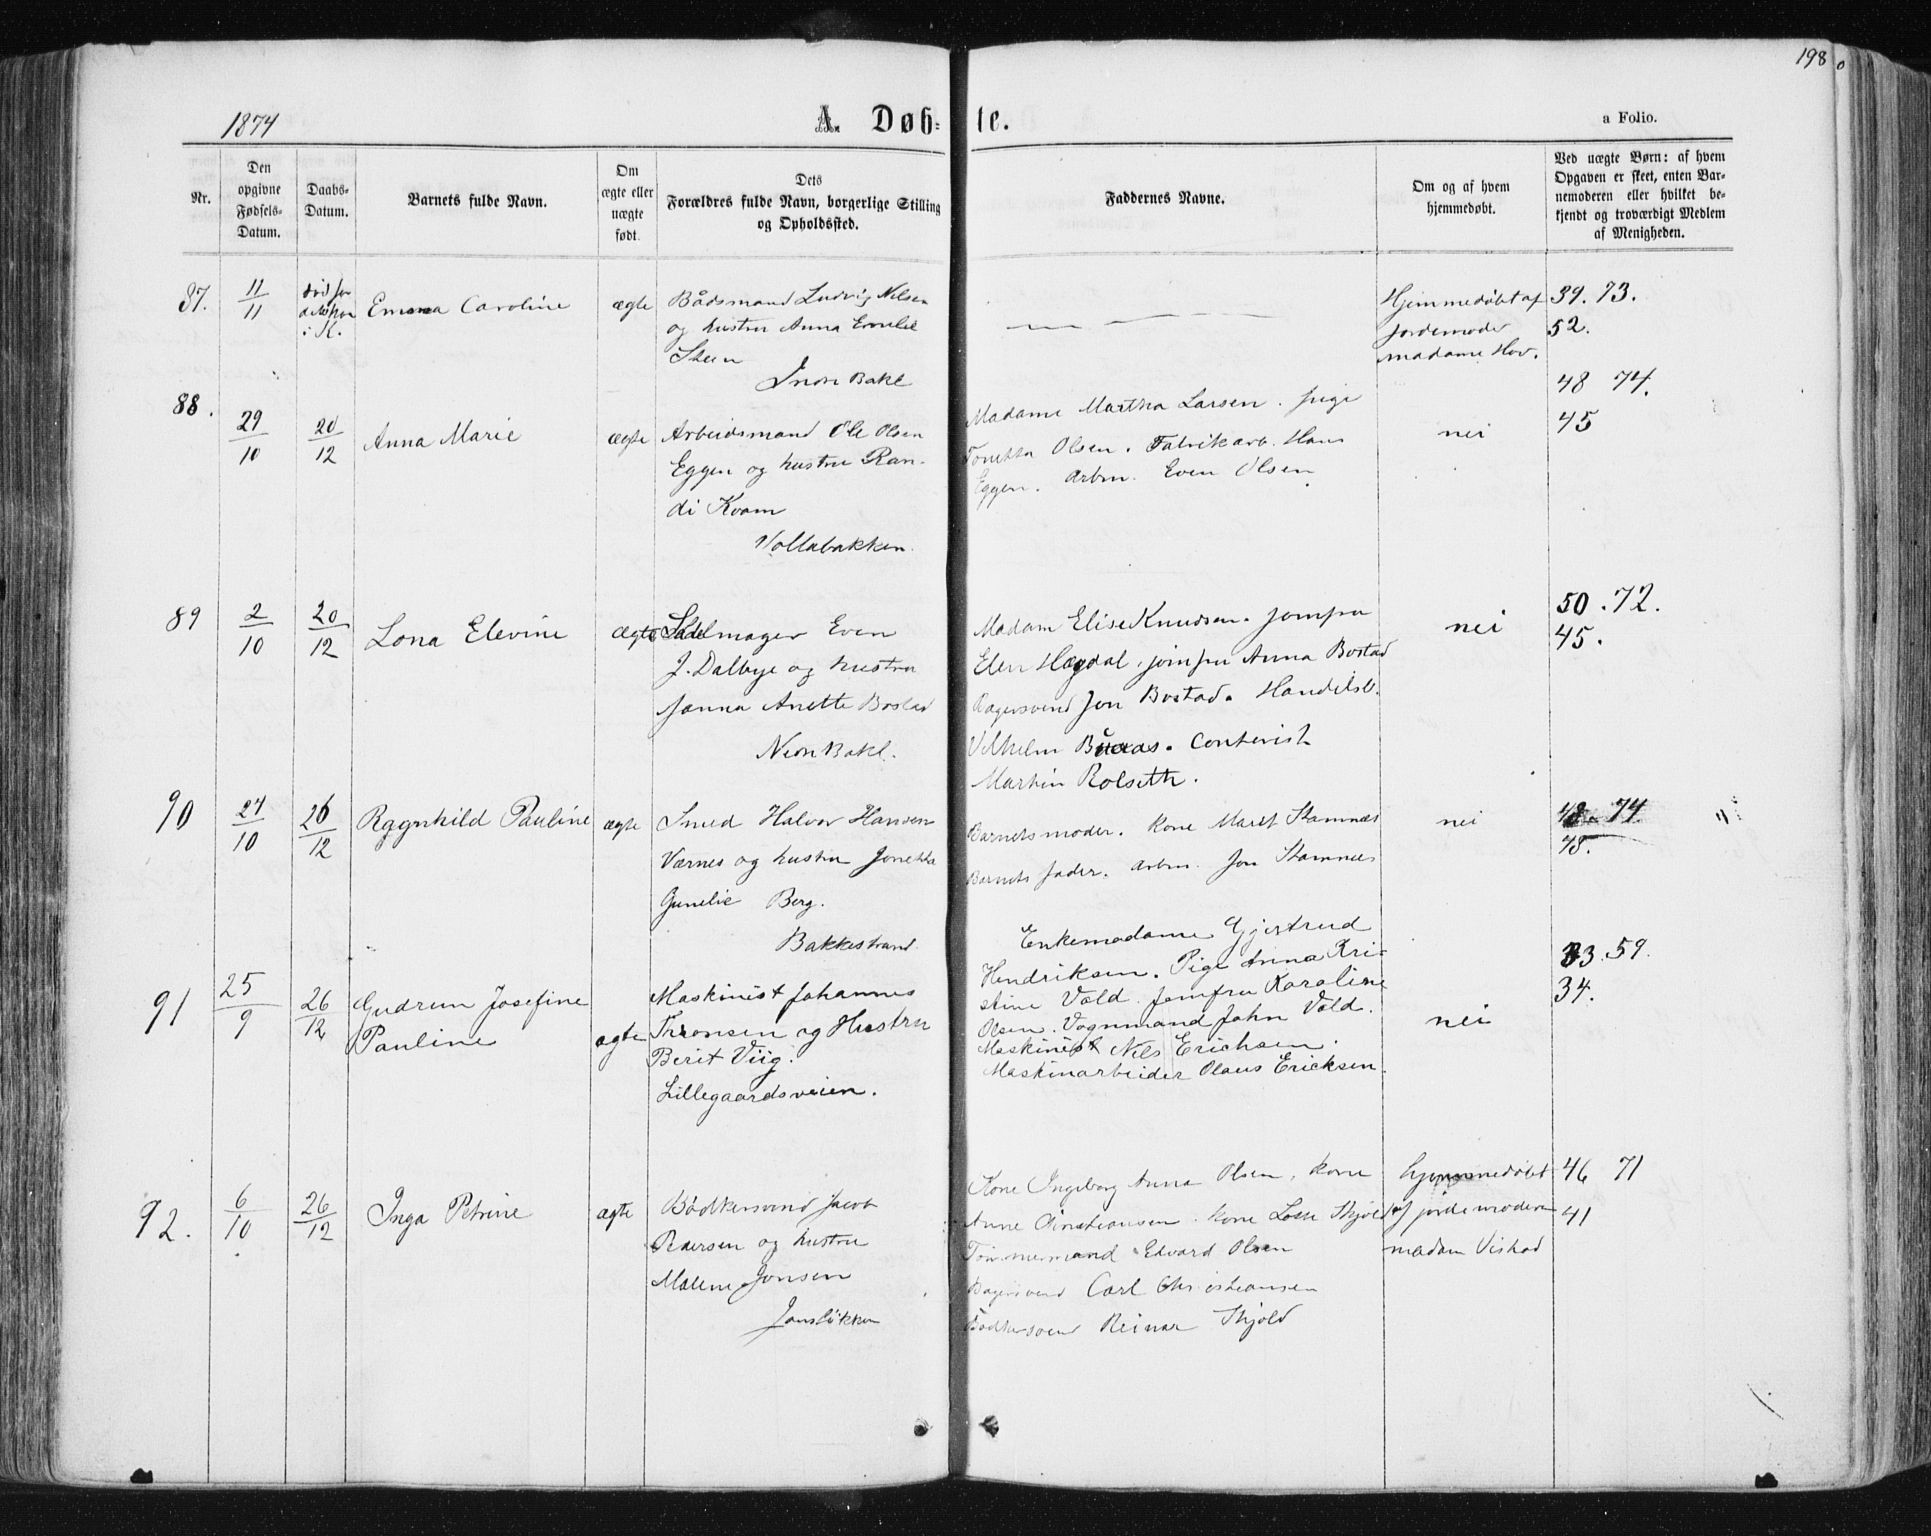 198
1874
A. Døb- te.
a Folio.
Nr.
Den opgivne Fødsels-Datum.
Daabs-Datum.
Barnets fulde Navn.
Om ægte eller uægte født.
Dets Forældres fulde Navn, borgerlige Stilling og Opholdssted.
Faddernes Navne.
Om og af hvem hjemmedøbt.
Ved uægte Børn: af hvem Opgaven er skeet, enten Barnemoderen eller hvilket bekjendt og troværdigt Medlem af Menigheden.
87.
11/11
i K.
Emma Caroline
ægte
Bådsmand Ludvig Nilsen
og hustru Anna Emelie
Steen
Bakl
Hjemmedøbt af
jordemoder
madame Hov.
39. 73.
52.
88.
29/10
20/12
Anna Marie
ægte
Arbeidsmand Ole Olsen
Eggen og hustru Ran-
di Kvam
Vollabakken.
Madame Martha Larsen. pige
Tonetta Olsen. Fabrikarb. Hans
Eggen. arbm. Even Olsen
nei
48 74.
45
89
2/10
20/12
Lona Elevine
ægte
Sadelmager Even
J. Dalbye og hustru
Janna Anette Bostad
Bakl.
Madam Elise Knudsen. jomfru
Elen Hægdal, jomfru Anna Bostad
Bagersvend Jon Bostad. Handelsb.
Vilhelm Buaas. Contorist
Martin Rolseth.
nei
50. 72.
45.
90
27/10
26/12
Ragnhild Pauline
ægte
Smed Halvor Hansen
Værnes og hustru Jonetta
Gunelie Berg.
Bakkestrand
Barnets moder. kone Maret Stamnes
Barnets fader. arbm. Jon Stamnes
nei
48. 74.
48.
91
25/9
26/12
Gudrun Josefine
Pauline
ægte
Maskinist Johannes
Tronsen og Hustru
Berit Viig.
Lillegaardsveien.
Enkemadame Gjertrud
Hendriksen. Pige Anna Kri-
stine Vold. Jomfru Karoline
Olsen. Vognmand John Vold.
Maskinist Nils Erichsen.
Maskinarbeider Olaus Ericksen.
nei
33. 59.
34.
92.
6/10
26/12
Inga Petrine
ægte
Bødkersvend Jacob
Pedersen og hustru
Malene Jonsen
Jonsløkken
Kone Ingeborg Anna Olsen, kone
Anne Christiansen. kone Skjold
Tømmermand Edvard Olsen
Bagersvend Carl Christiansen
Bødkersvend Reinar Skjold
hjemmedøbt
af jordemoderen
madam
46 71
41